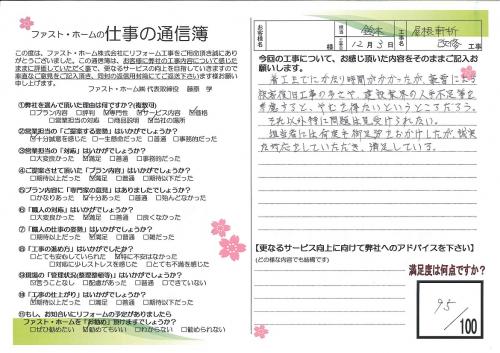 ファスト・ホームの仕事の通信簿
この度は、ファスト・ホーム株式会社にリフォーム工事をご用命頂き誠にありがとうございました。この通信簿は、お客様に弊社の工事について感じたままに評価していただく事で、更なるサービスの向上を目指していきますので
率直なご意見をご記入頂き、同封の返信用封筒にてご返送下さいます様お願い申し上げます。
ファスト・ホーム㈱ 代表取締役 藤原 学
①弊社を選んで頂いた理由は何ですか?(複数可)
□プラン内容 □評判 ☑専門性 ☑サービス内容 ☑価格
□営業担当の対応 □商品説明 □当社の場所
②営業担当の「ご要望する姿勢」はいかがでしょうか?
☑十分誠意を感じた □一生懸命だった □普通 □事務的だった
③営業担当の「対応」はいかがでしょうか?
□大変良かった ☑満足 □普通 □事務的だった
④ご提案させて頂いた「プラン内容」はいかがでしょうか?
□期待以上だった ☑満足 □普通 □期待以下だった
⑤プラン内容に「専門家の意見」はありましたでしょうか?
□かなりあった ☑十分あった □普通 □殆んどなかった
⑥「職人の対応」はいかがでしょうか?
□大変良かった ☑満足 □普通 □良くなかった
⑦「職人の仕事の姿勢」はいかがでしょうか?
□期待以上だった ☑満足 □普通 □期待以下だった
⑧「工事の進め方」はいかがでしたか?
□とても安心していられた ☑特に不安はなかった
□対応に少しストレスを感じた □とても不満を感じた
⑨現場の「管理状況(整理整頓等)」はいかがでしょうか?
☑言うことなし □配慮があった □普通 □できていない
⑩「工事の仕上がり」はいかがでしょうか?
☑期待以上だった ☑満足 □普通 □期待以下だった
⑪もし、お知合いにリフォームの予定がありましたら
ファスト・ホームを「お勧め」頂けますでしょうか?
□ぜひ勧めたい ☑勧めてもいい □わからない □勧められない
お客様名 鈴木 工事名 屋根軒樋改修 工事
12月3日
今回の工事について、お感じ頂いた内容をそのままご記入お願いします。
着工までにかなり時間がかかったが、
復旧工事の多さや、建設業界の人手不足等を
考慮すると、やむを得ないというところだろう。
それ以外特に問題は見受けられない。
担当者には何度も御足労をおかけしたが、誠実
な対応をしていただき、満足している。
【更なるサービス向上に向けて弊社へのアドバイスを下さい】
(どの様な内容でも結構です)
満足度は何点ですか?
95/100